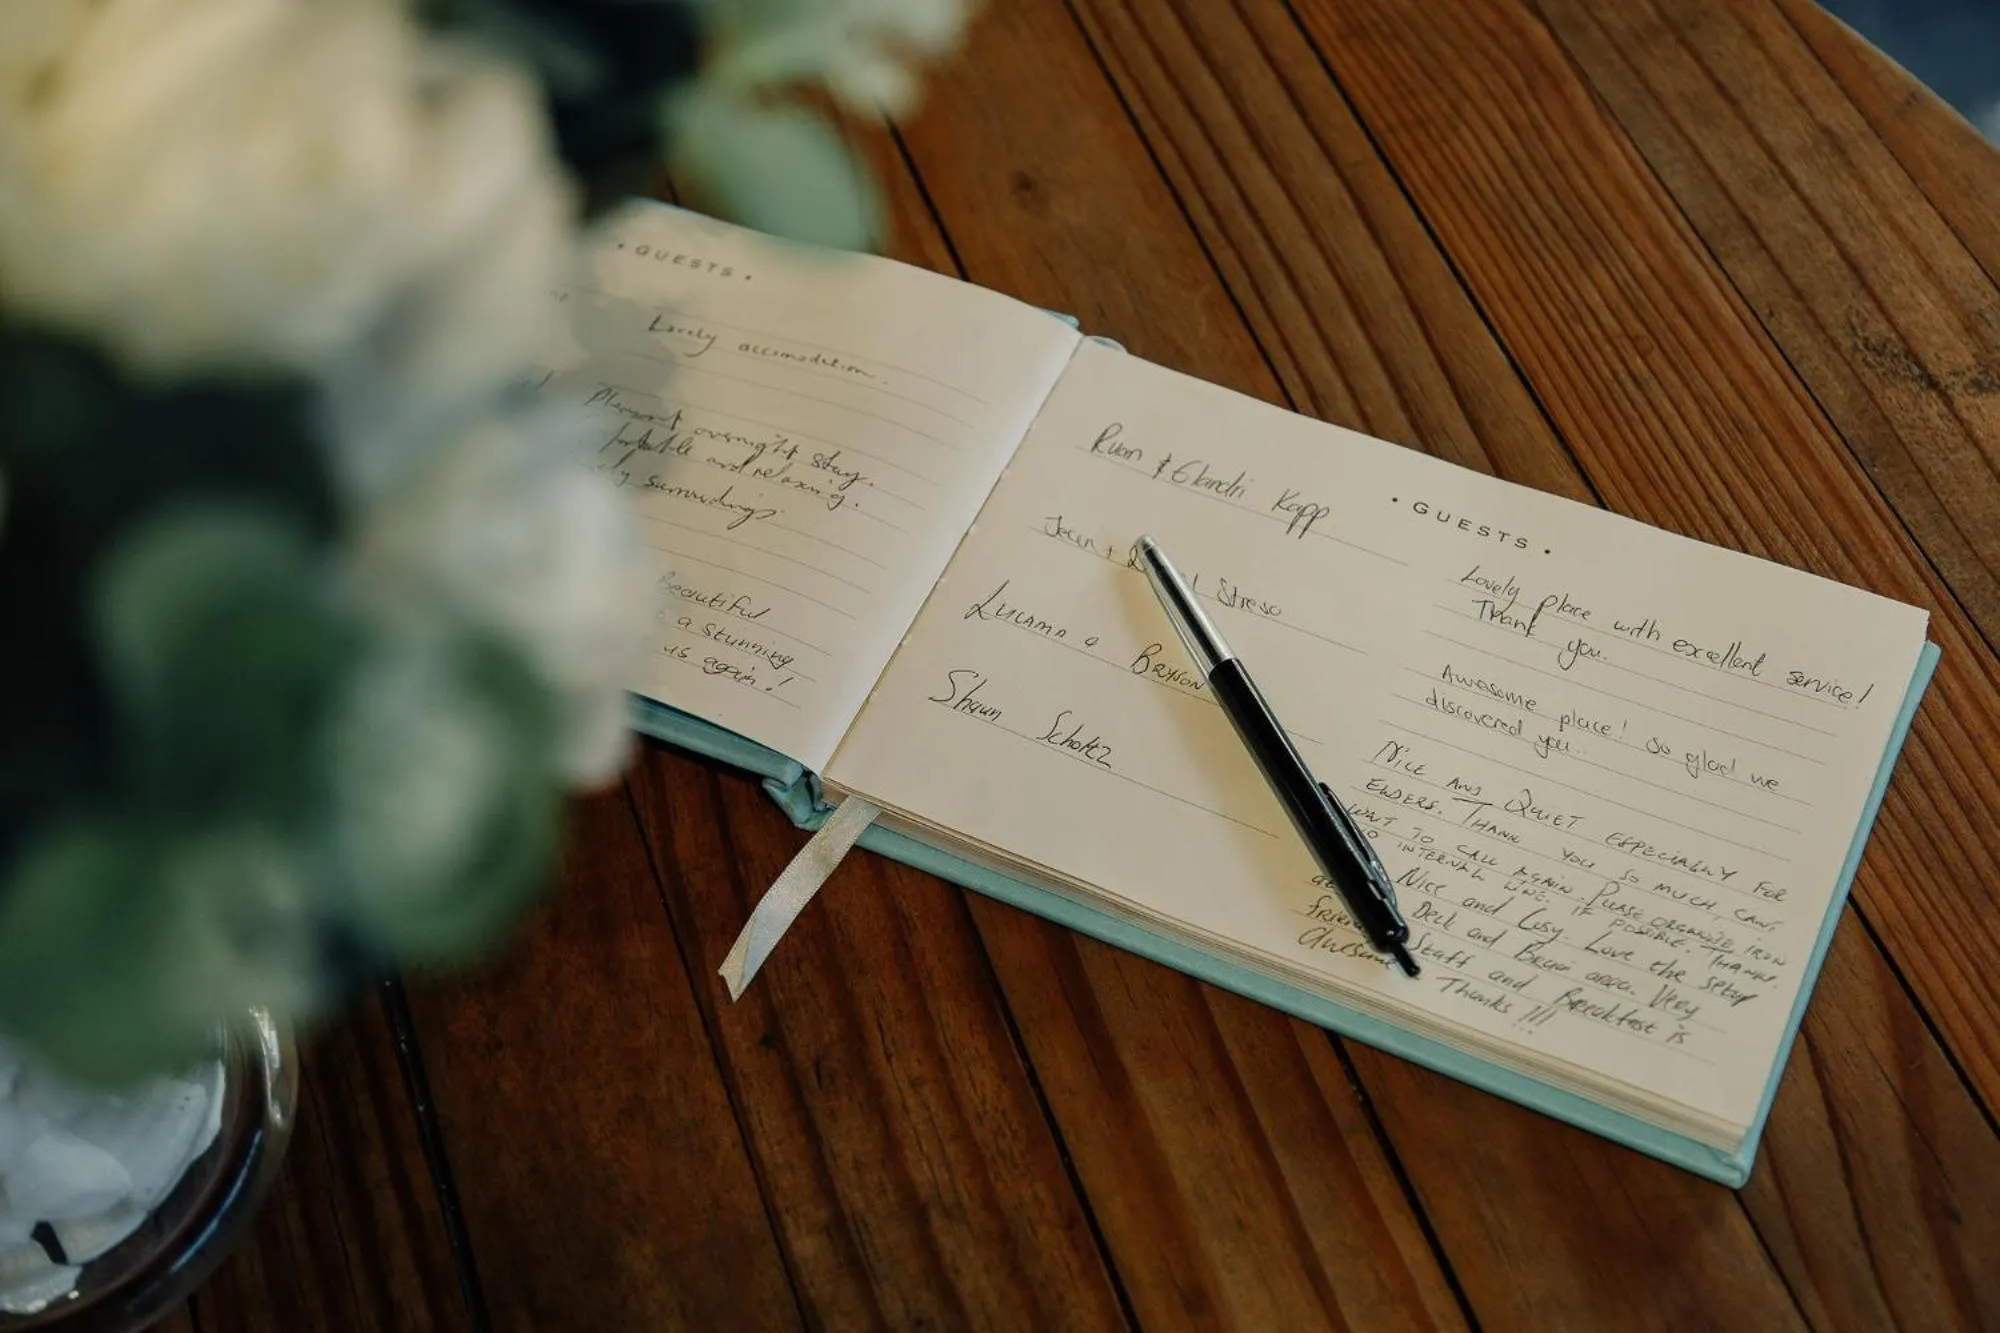 • GUESTS •
Lovely accomodation.
Pleasant overnight stay.
and relaxing.
surroundings.
Beautiful
a stunning
us again!
• GUESTS •
Ruan & Elandri Kapp
Lovely place with excellent service!
Thank you.
+ Streso
Awesome place! So glad we
discovered you..
Lucama & Bryson
NICE AND QUIET ESPECIALLY FOR
ELDERS. THANK YOU SO MUCH,
WANT TO CALL AGAIN. PLEASE ORGANIZE IRON
INTERNAL LINE. IF POSSIBLE. THANKS.
Shaun Scholtz
Nice and Cosy. Love the setup
Deck and Braai area. Very
Staff and Breakfast is
Awesome Thanks!!!